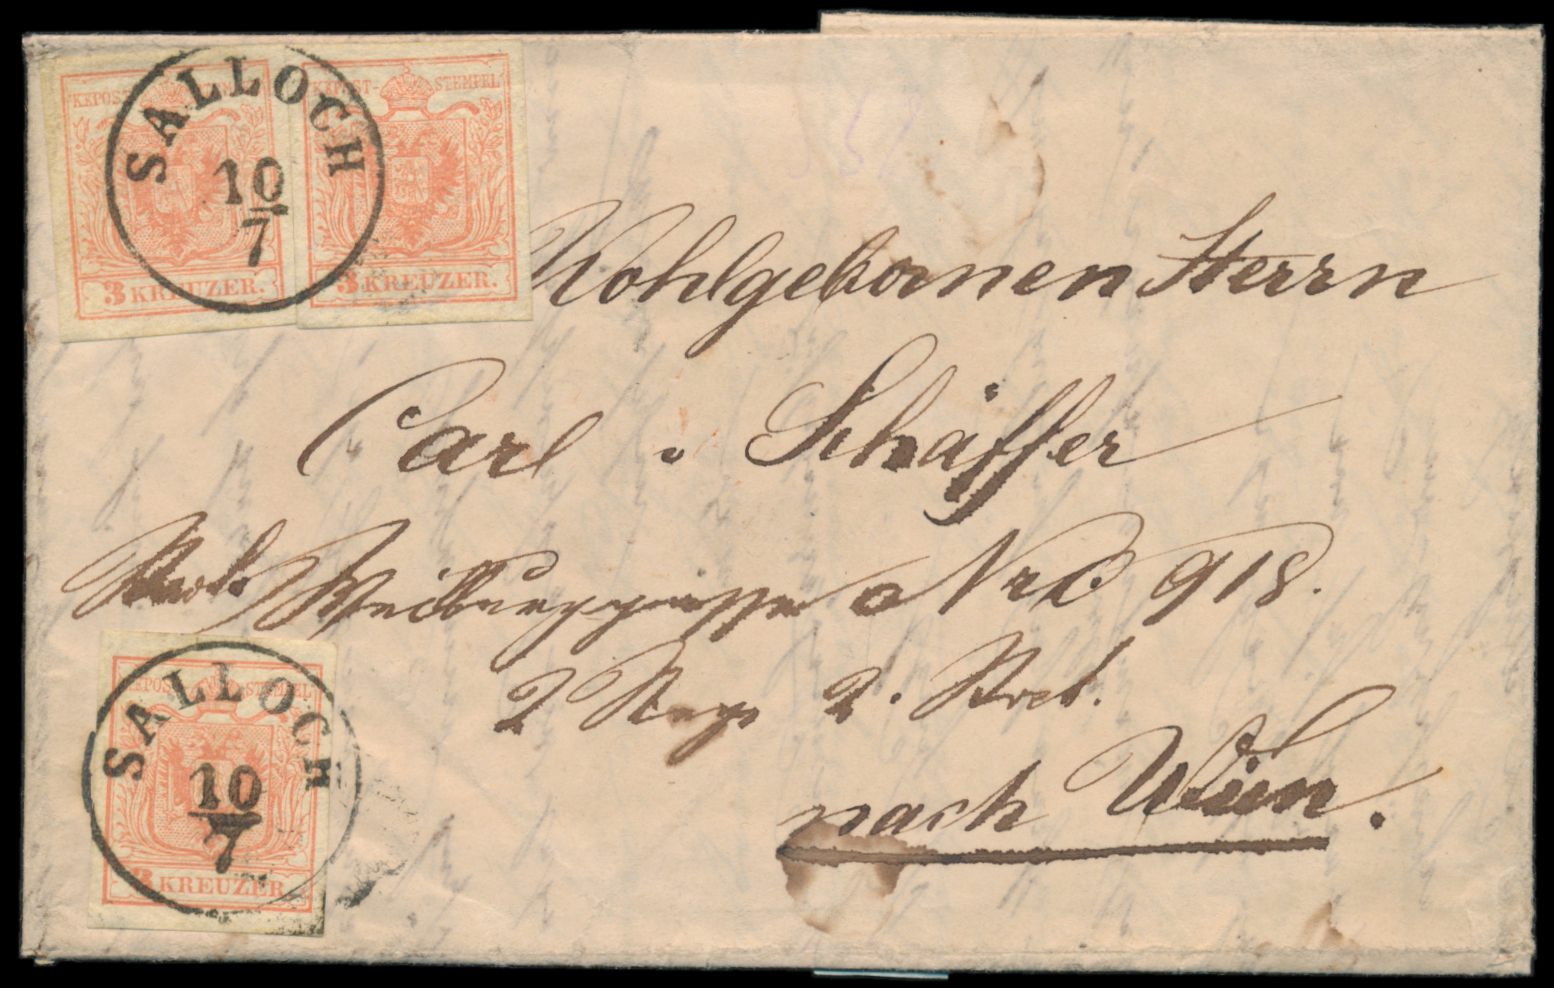 SALLOCH
10
7
KKPOST-STEMPEL
3 KREUZER.
3 KREUZER.
Wohlgebornen Herrn
Carl Schäffer
Weihburggasse Nro 918.
2 Stiege 2. Stock.
nach Wien.
SALLOCH
10
7
KKPOST-STEMPEL
3 KREUZER.